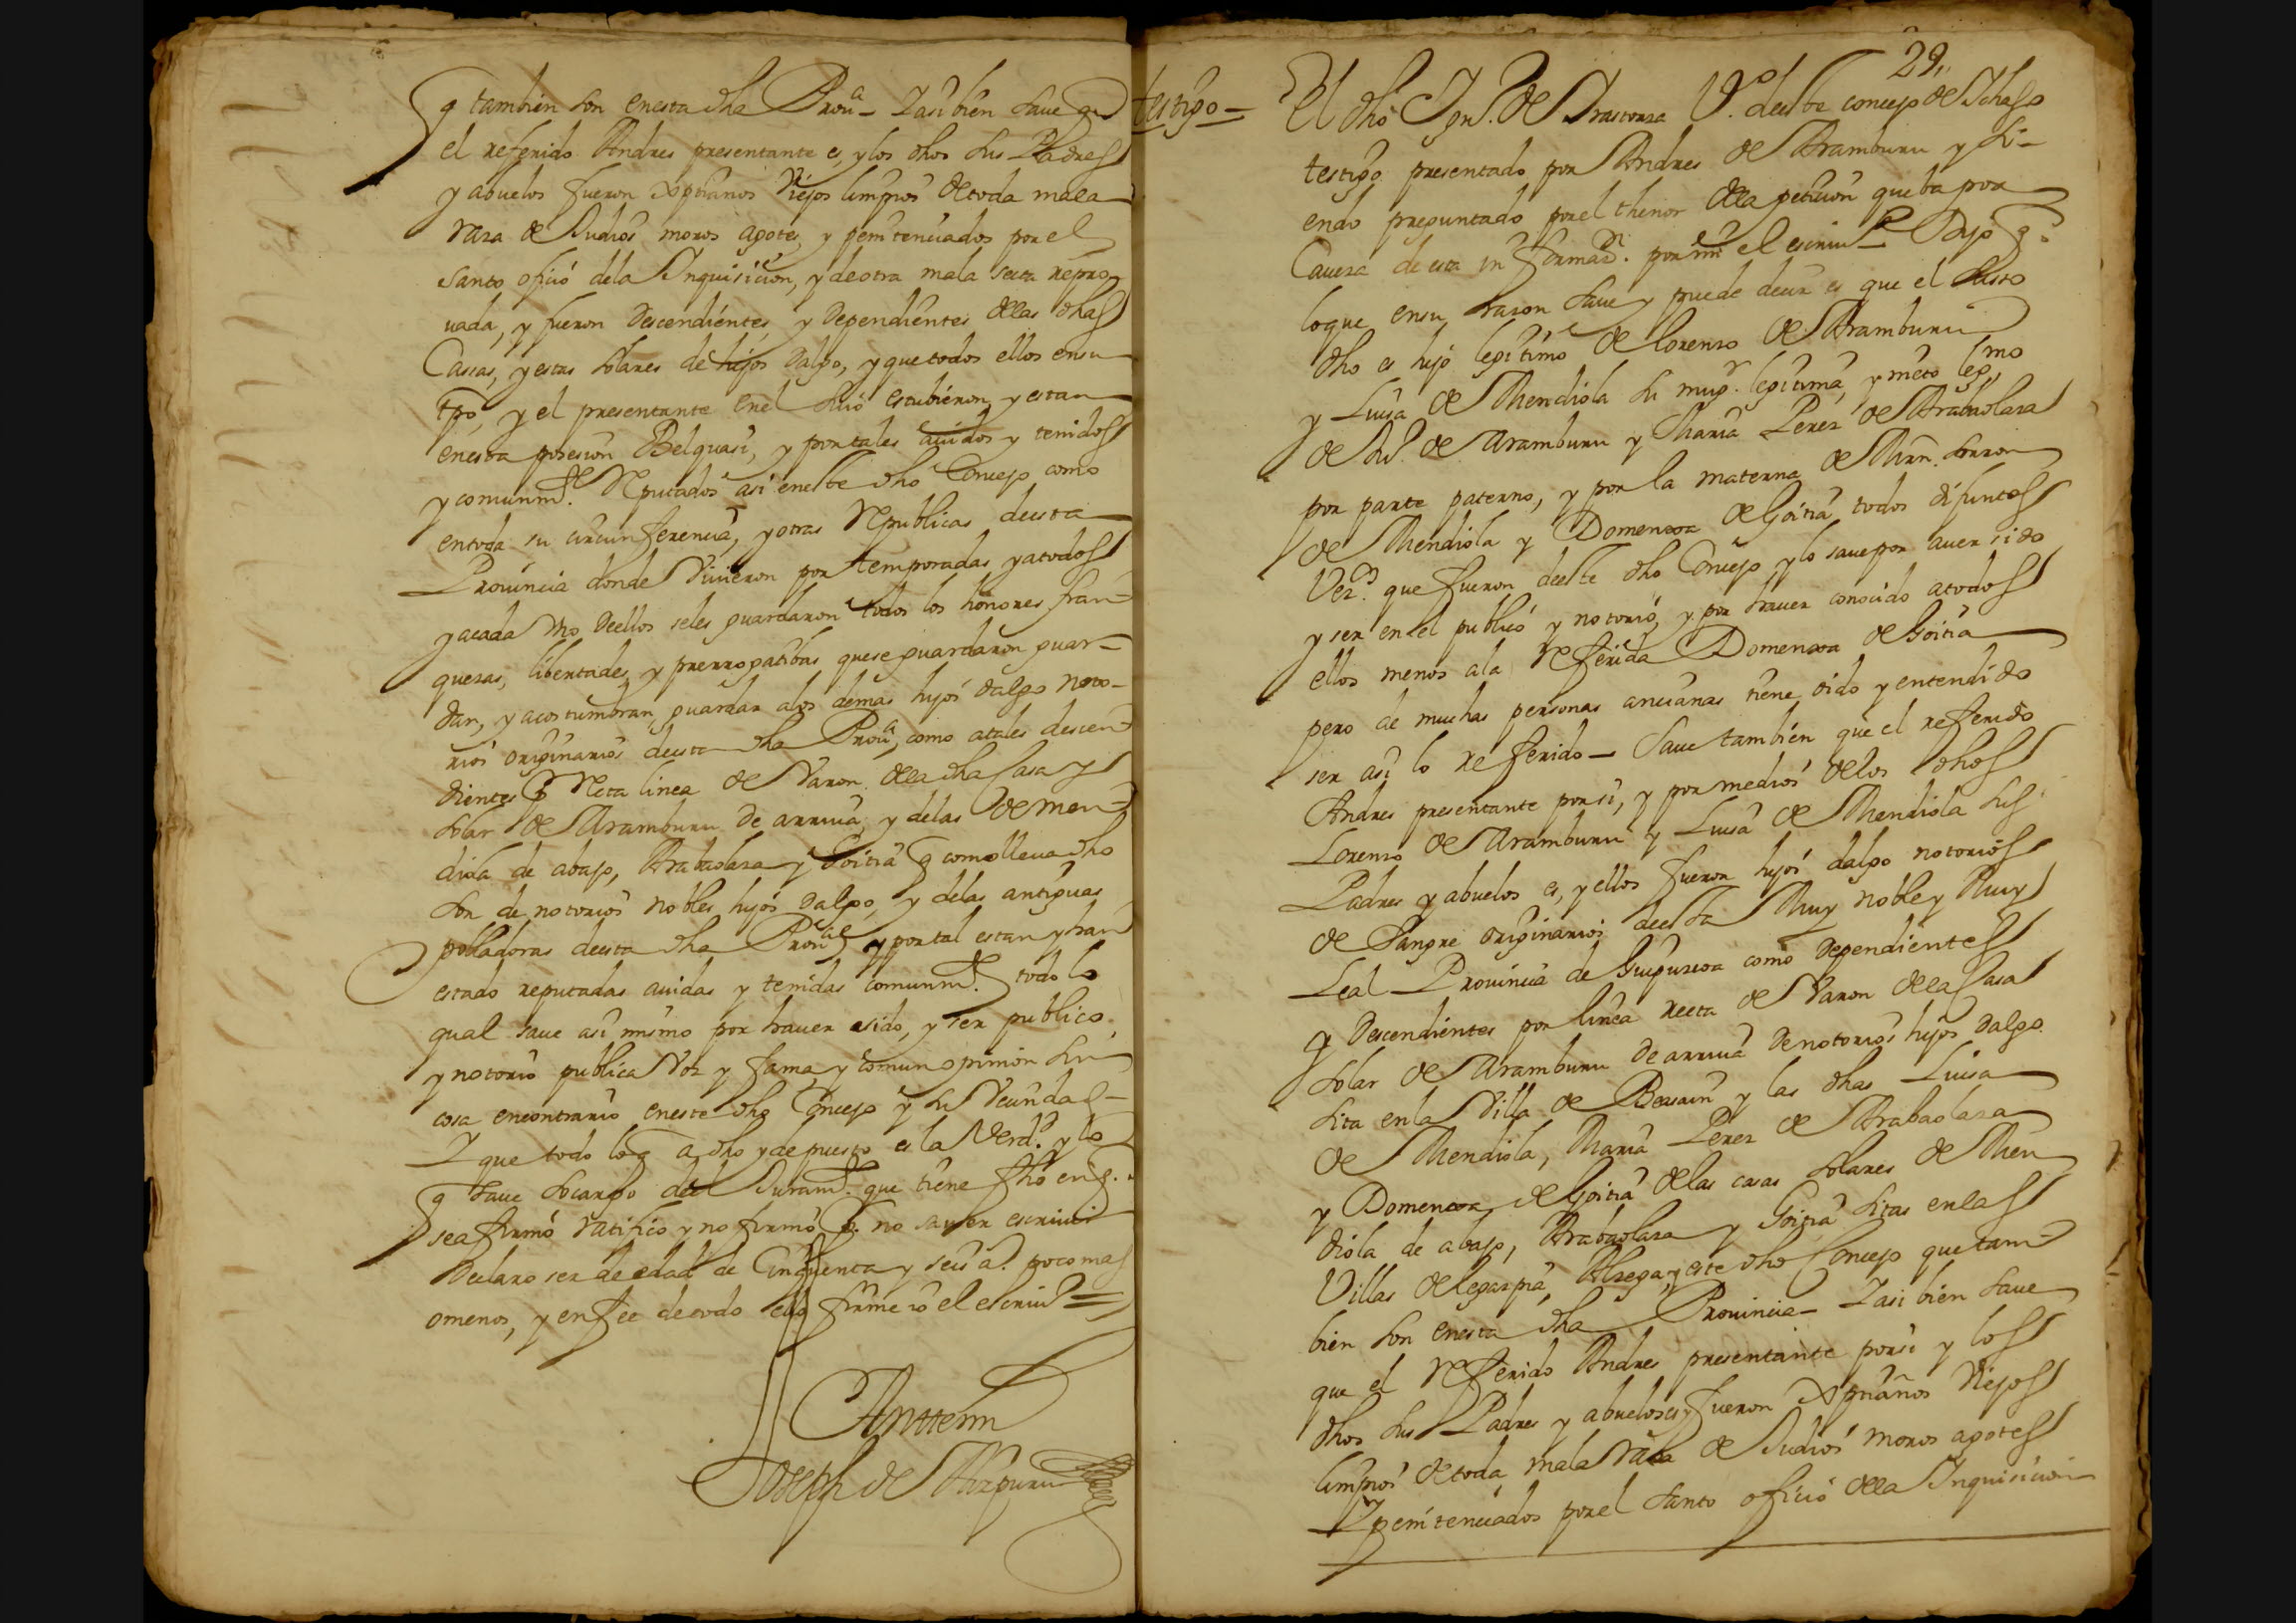 q tambien son enesta dha Prou.ª – Y asi bien saue que
el referido Andres presentante es, y los dhos sus Padres
y abuelos fueron xptianos Viejos limpios de toda mala
raza de Judios moros agotes, y penitenciados por el
santo oficio dela Inquisicion, y de otra mala secta repro-
uada, y fueron Descendientes, y Dependientes dellas dhas
Casas, y estas solares de hijos dalgo, y que todos ellos ensu
tpo, y el presentante enel suio estubieron, y estan
enesta posesion Velquasi, y por tales auidos y tenidos
y comunm.te Reputados asi eneste dho Concejo como
entoda su circunferencia, y otras Republicas desta
Prouincia donde Viuieron por temporadas y atodos
y acada Vno dellos seles guardaron todos los honores fran-
quezas, libertades, y prerrogatibas quese guardaron guar-
dan, y acostumbran guardar alos demas hijos dalgo noto-
rios originarios desta dha Prou.ª, como atales descen-
dientes p Recta linea de Varon della dha Casa y
solar de Aramburu de arriua, y delas de Men-
diola de abajo, Arabaolaza y Goitia q como lleua dho
son de notorios nobles hijos dalgo, y delas antiguas
pobladoras desta dha Prou.ª y por tal estan y han
estado reputadas auidas y tenidas comunm.te todo lo
qual saue asi mismo por hauer sido, y ser publico,
y notorio publica Voz y fama, y comun opinion sin
cosa encontrario eneste dho Concejo y su Vecindad –
Y que todo lo q a dho y depuesto es la Verd.d y lo
q saue socargo del Juram.to que tiene fho en q.
se afirmó ratificó y no firmó p. no sauer escriuir
Declaro ser de edad de Cinquenta y seis a.s poco mas
omenos, y enfee de todo ello firme yo el escriu.no =
Antemi
Joseph de Aizpuru
29,,
testigo =
El dho Ign.º de Vrastorza V.º deeste concejo de Ichaso
testigo presentado por Andres de Aramburu y si-
endo preguntado por el thenor dela peticion que ba por
Caueza de esta informaz.n por mi el escriu.no Dijo q.e
loque ensu razon saue y puede decir es que el suso
dho es hijo legitimo de Lorenzo de Aramburu
y Luisa de Mendiola su mug.r legitima, y nieto leg.mo
de de Aramburu y Maria Perez de Arabaolaza
por parte paterno, y por la materna de
de Mendiola y Domenxa de Goitia todos difuntos
Vez.s que fueron deeste dho Concejo y lo saue por auer sido
y ser en el publico y notorio, y por hauer conocido atodos
ellos menos ala Referida Domenxa de Goitia
pero de muchas personas ancianas tiene oido y entendido
ser asi lo referido – Saue tambien que el referido
Andres presentante por si, y por medios delos dhos
Lorenzo de Aramburu y Luisa de Mendiola sus
Padres y abuelos es, y ellos fueron hijos dalgo notorios
de sangre originarios deesta Muy noble y Muy
Leal Prouincia de Guipuzcoa como Dependientes
y Descendientes por linea recta de Varon dela Casa
solar de Aramburu de arriua de notorios hijos dalgo
sita enla Villa de Beasain y las dhas Luisa
de Mendiola, Maria Perez de Arabaolaza
y Domenxa de Goitia delas casas solares de Men
diola de abajo, Arabaolaza y Goitia sitas enlas
Villas de Legazpia, Alzega, y este dho Concejo que tam-
bien son enesta dha Prouincia – Y asi bien saue
que el Referido Andres presentante por si y los
dhos sus Padres y abuelos es, y fueron xptianos Viejos
limpios de toda mala raza de Judios moros agotes
Y penitenciados por el santo oficio dela Inquisicion